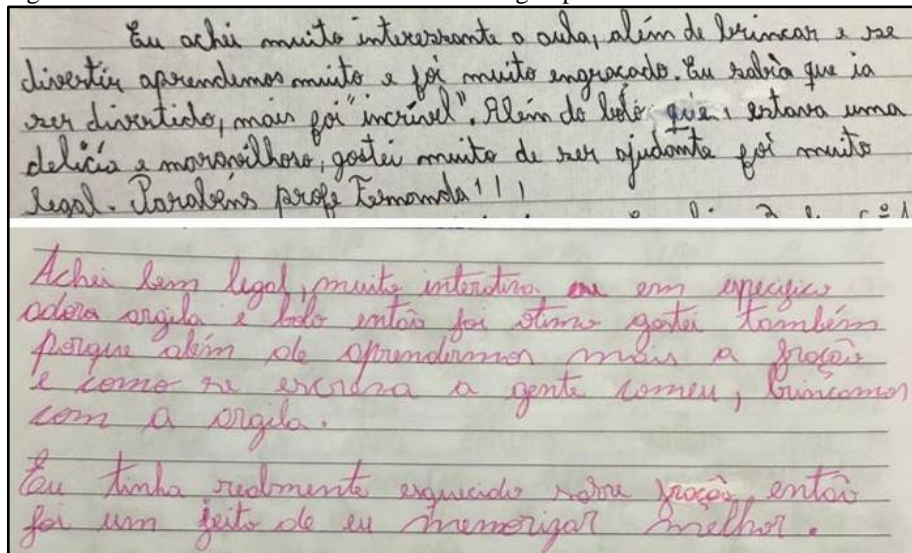 Eu achei muito interessante a aula, além de brincar e se
divertir aprendemos muito e foi muito engraçado. Eu sabia que ia
ser divertido, mais foi "incrível". Além do bolo que, estava uma
delícia e maravilhoso, gostei muito de ser ajudante foi muito
legal. Parabéns profe Fernanda!!!
Achei bem legal, muito interativa em em específico
adoro argila e bolo então foi otimo gostei também
porque além de aprendermos mais a fração
e como se escreva a gente comeu, brincamos
com a argila.
Eu tinha realmente esquecido sobre fração, então
foi um jeito de eu memorizar melhor.